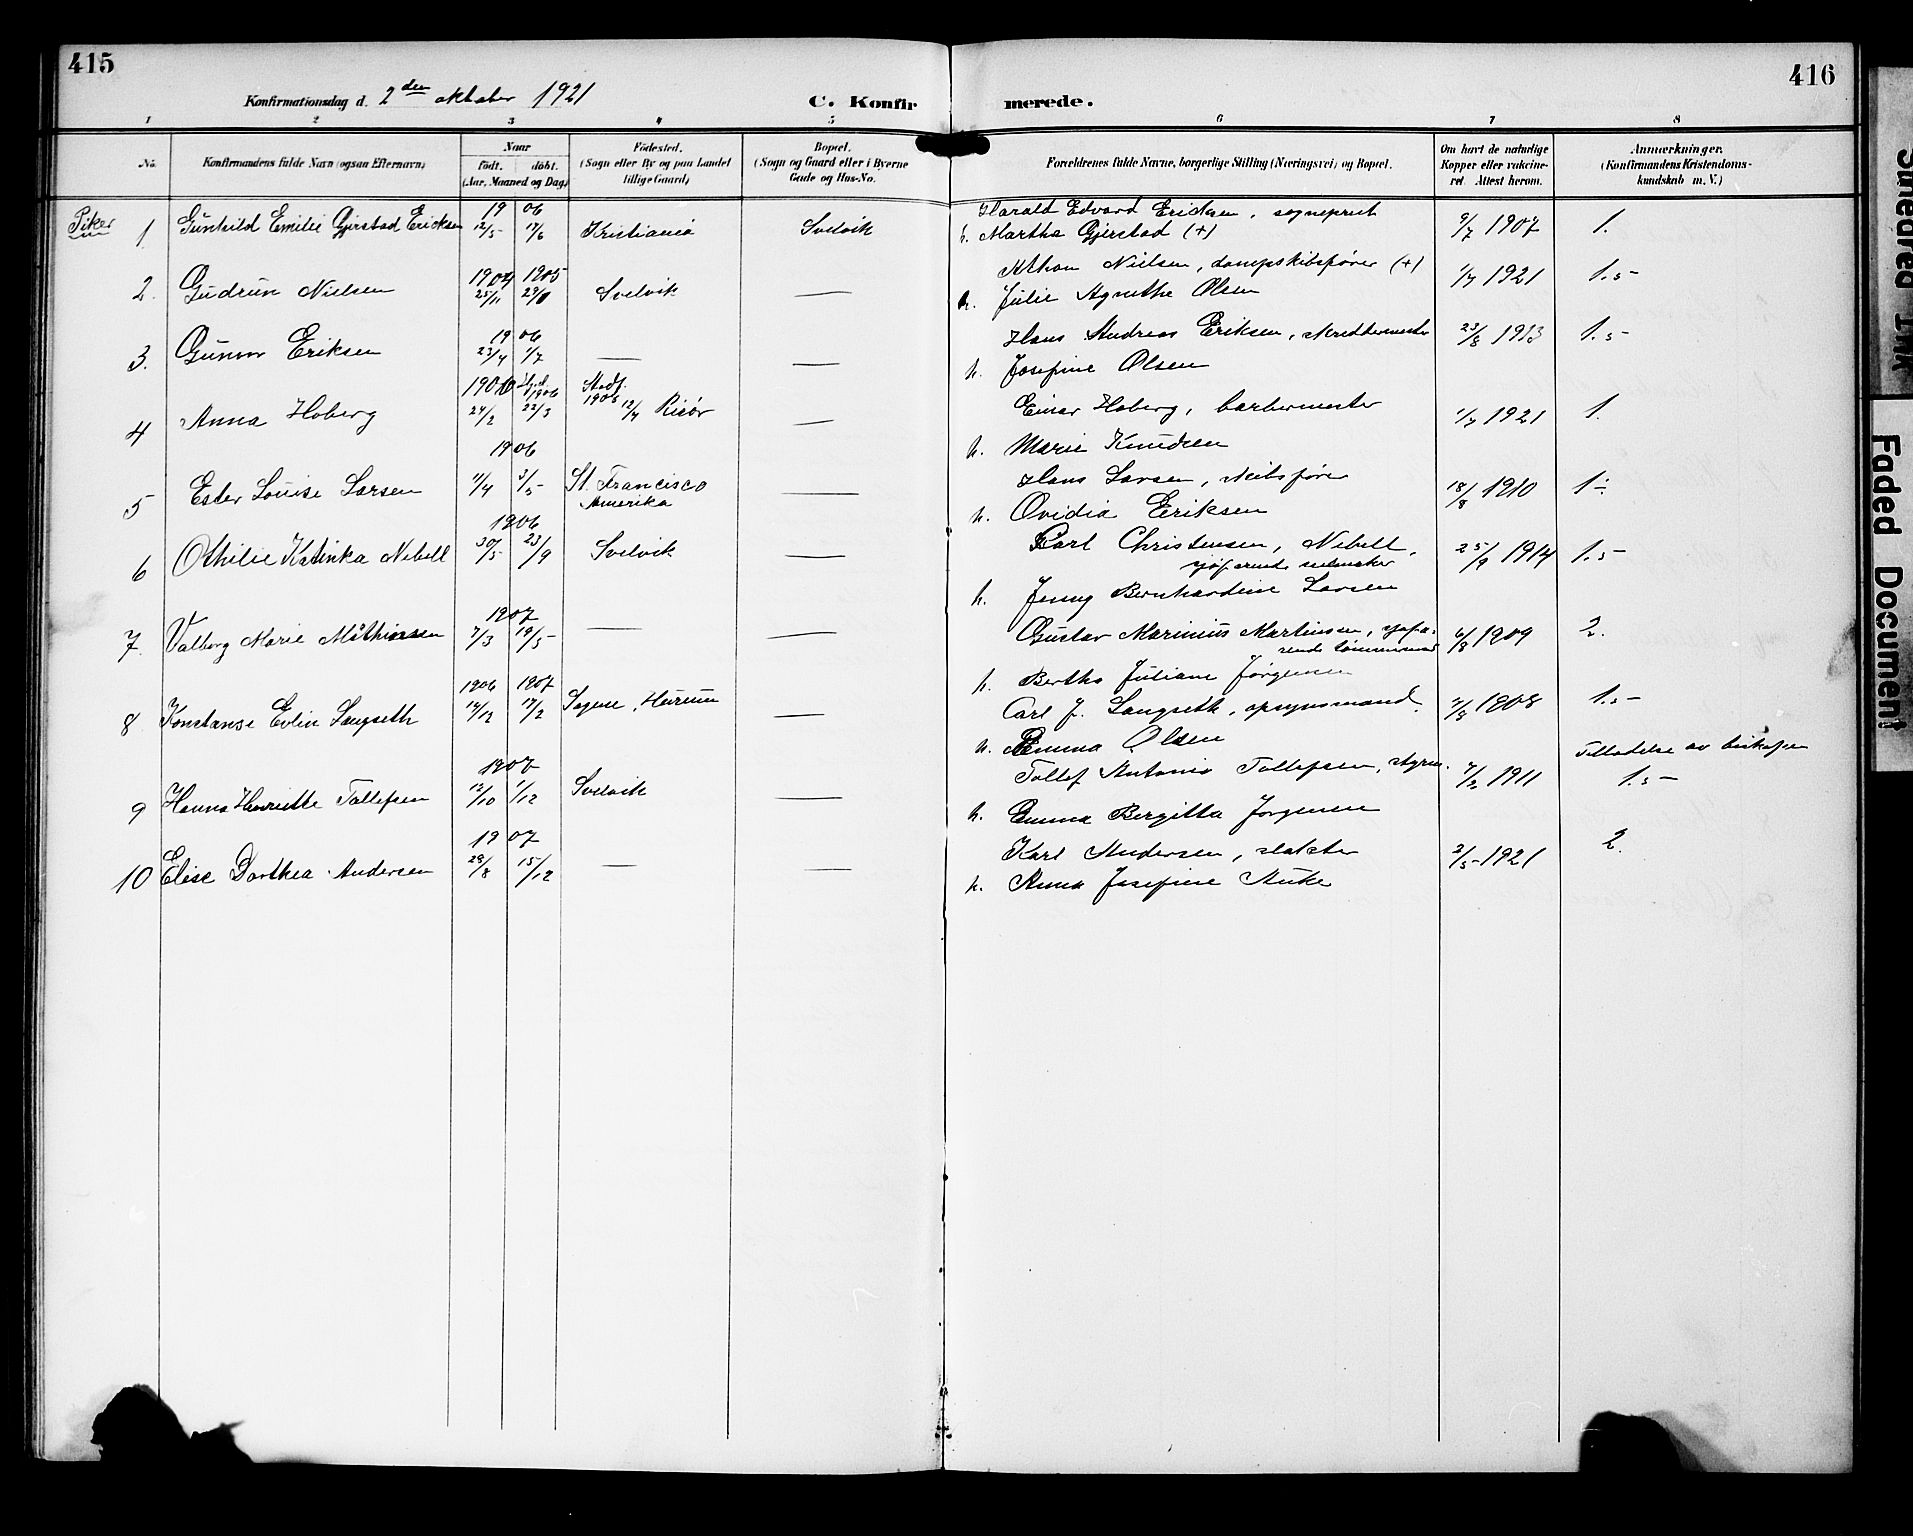 415
416
Konfirmationsdag d. 2den oktober 1921
C. Konfirmerede.
1 2 3 4 5 6 7 8
No. Konfirmandens fulde Navn (ogsaa Efternavn) Naar født. døbt. (Aar, Maaned og Dag) Fødested. (Sogn eller By og paa Landet tillige Gaard) Bopæl. (Sogn og Gaard eller i Byerne Gade og Hus-No. Forældrenes fulde Navne, borgerlige Stilling (Næringsvei) og Bopæl. Om havt de naturlige Kopper eller vaccineret. Attest herom. Anmærkninger. (Konfirmandens Kristendomskundskab m. V.)
Piker
1. Gunhild Emilie Gjerstad Ericksen 1906 12/5 17/6 Kristiania Svelvik Harald Edvard Ericksen, sogneprest 9/7 1907 1.
h. Martha Gjerstad (+)
2. Gudrun Nielsen 1904 25/11 1905 Svelvik — Nielsen, dampskibsfører (+) 1/7 1921 1.5-
h. Julie Agnethe Olsen
3. Gunvor Eriksen 1906 23/4 1/7 — — Hans Andreas Eriksen, skreddermester 23/8 1913 1.5-
h. Josefine Olsen
4 Anna Hoberg 24/2 22/3 Stadf. 1906 12/4 Risør — Einar Hoberg, barbermester 1/7 1921 1.
h. Marie Knudsen
5 Ester Louise Larsen 1906 11/4 3/5 St. Francisco Amerika — Hans Larsen, skibsfører 18/8 1910 1÷
h. Ovidia Eriksen
6 Othilie Katinka Nebell 1906 30/5 23/9 Svelvik — Carl Christensen, Nebell, 25/9 1914 1.5-
sjøfarende
h. Jenny Bernhardine Larsen
7. Valborg Marie Mathinssen 1907 7/3 19/5- — — Gustav Marinius Martinssen, sjøfarende tømmermand 6/8 1909 2.
h. Bertha Juliane Jørgensen
8 Konstanse Evlin Langseth 1906 14/12 1907 17/2 Sagene, Hurum — Carl J. Langseth, opsynsmand. 7/8 1908 1.5-
h. Emma Olsen
9 Hanna Henriette Tollefsen 1907 12/10 1/12 Svelvik — Tollef Antonio Tollefsen, styrm. 7/2 1911 Tilladelse av biskopen 1.5-
h. Emma Bergitta Jørgensen
10 Elise Dorthea Andersen 1907 29/8 15/12 — — Karl Andersen, slakter 2/5- 1921 2.
h. Anna Josefine Auke
Faded Document